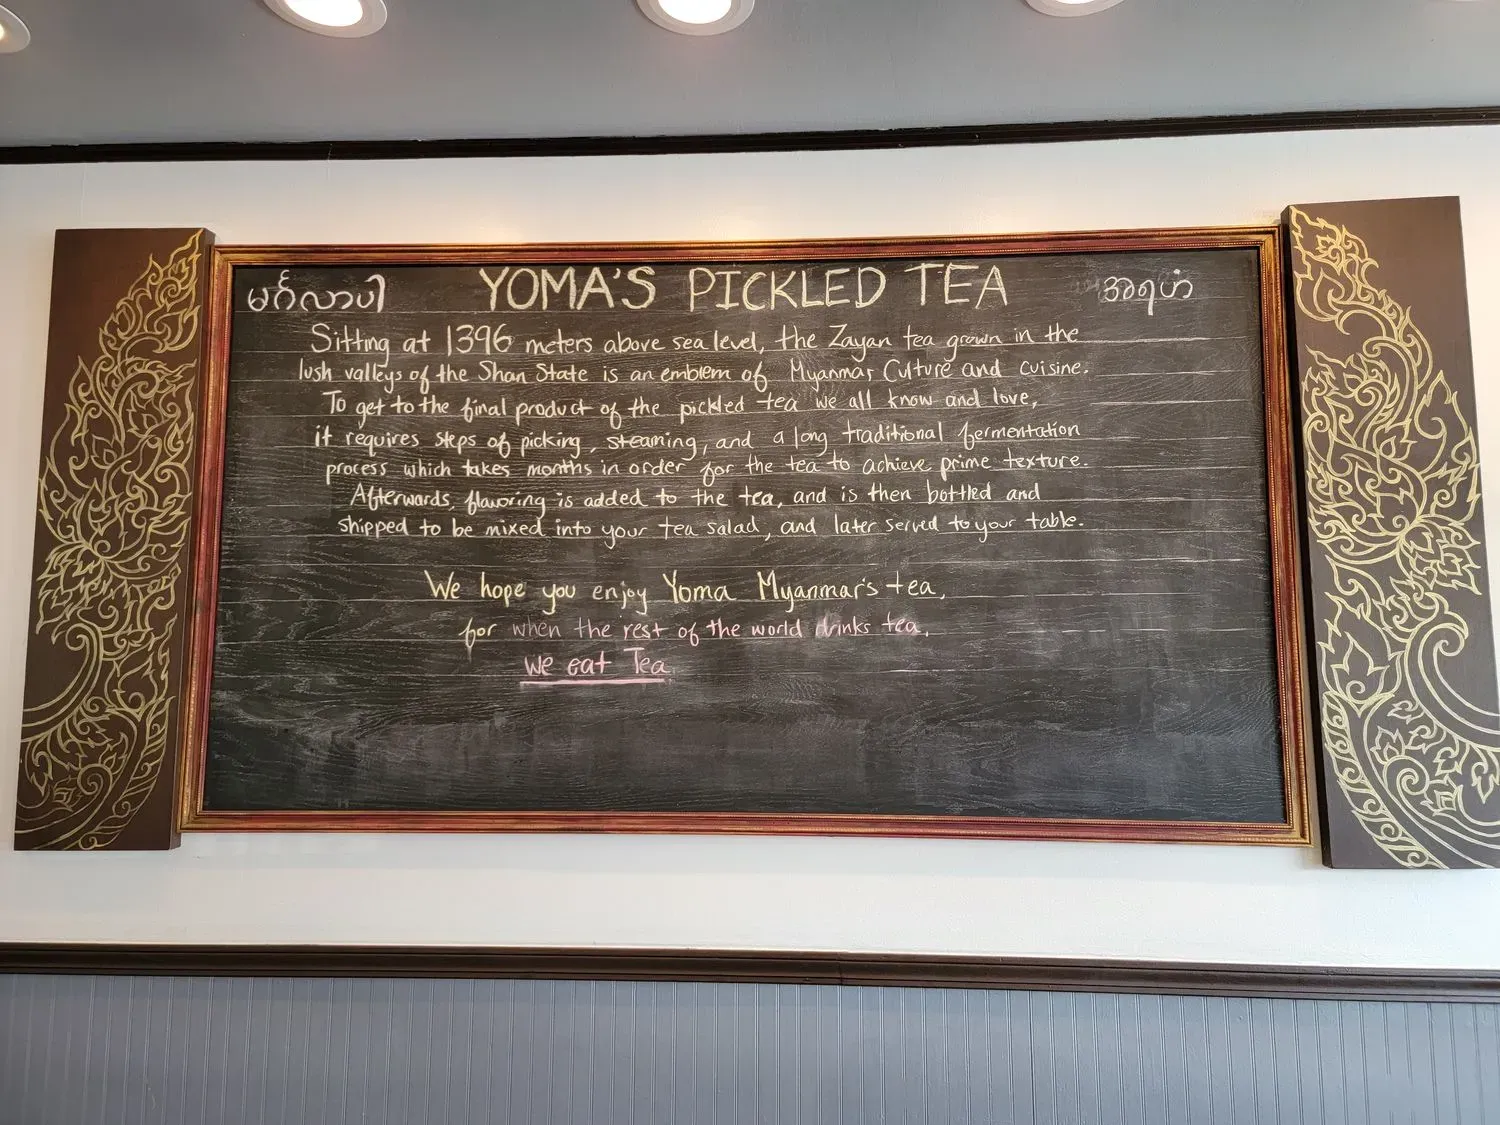 မင်္ဂလာပါ YOMA'S PICKLED TEA အရဟံ
Sitting at 1396 meters above sea level, the Zayan tea grown in the
lush valleys of the Shan State is an emblem of Myanmar Culture and cuisine.
To get to the final product of the pickled tea we all know and love,
it requires steps of picking, steaming, and a long traditional fermentation
process which takes months in order for the tea to achieve prime texture.
Afterwards, flavoring is added to the tea, and is then bottled and
shipped to be mixed into your tea salad, and later served to your table.
We hope you enjoy Yoma Myanmar's tea,
for when the rest of the world drinks tea,
we eat Tea.